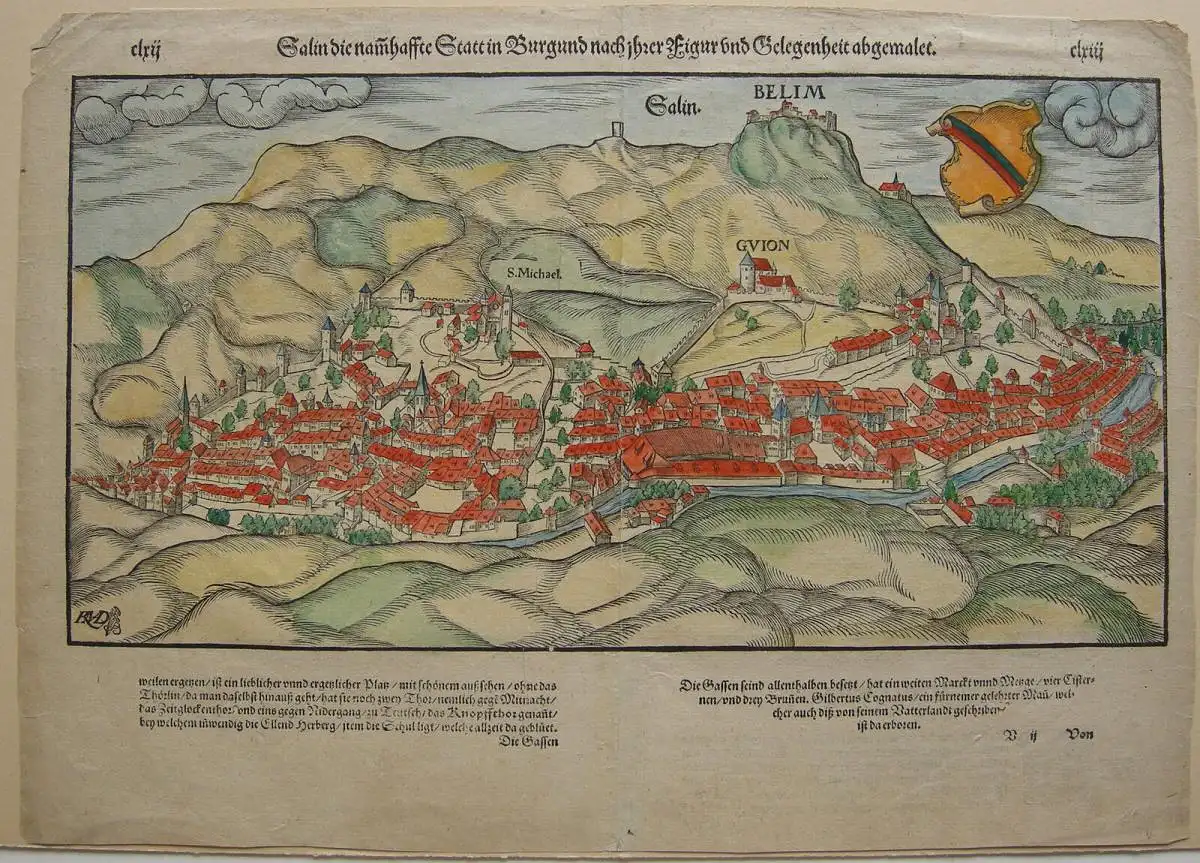 clxij Salin die nam̃haffte Statt in Burgund nach jhrer Figur vnd Gelegenheit abgemalet. clxiij
BELIM
Salin.
GVION
S. Michael.
weilen ergetzen / ist ein lieblicher vnnd ergetzlicher Platz / mit schönem außsehen / ohne das
Thörlin / da man daselbst hinauß geht / hat sie noch zwey Thor / nemlich gegẽ Mitnacht /
das Zeitglockenthor / vnd eins gegen Nidergang / zu Teutsch / das Knopffthor genañt /
bey welchem inwendig die Ellend Herberg / item die Schul ligt / welche allzeit da geblüet.
Die Gassen
Die Gassen seind allenthalben besetzt / hat ein weiten Marckt vnnd Metzge / vier Cister-
nen / vnd drey Bruñen. Gilbertus Cognatus / ein fürnemer gelehrter Mañ / wel-
cher auch diß von seinem Vatterlandt geschriben /
ist da erboren.
V ij Von